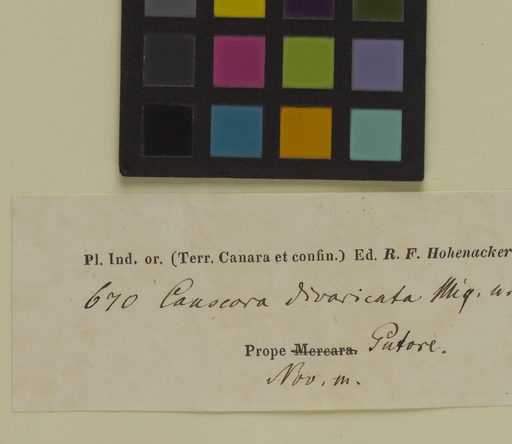 Pl. Ind. or. (Terr. Canara et confin.) Ed. R. F. Hohenacker
670 Canscora divaricata Miq.
Prope Mercara. Putore.
Nov. m.